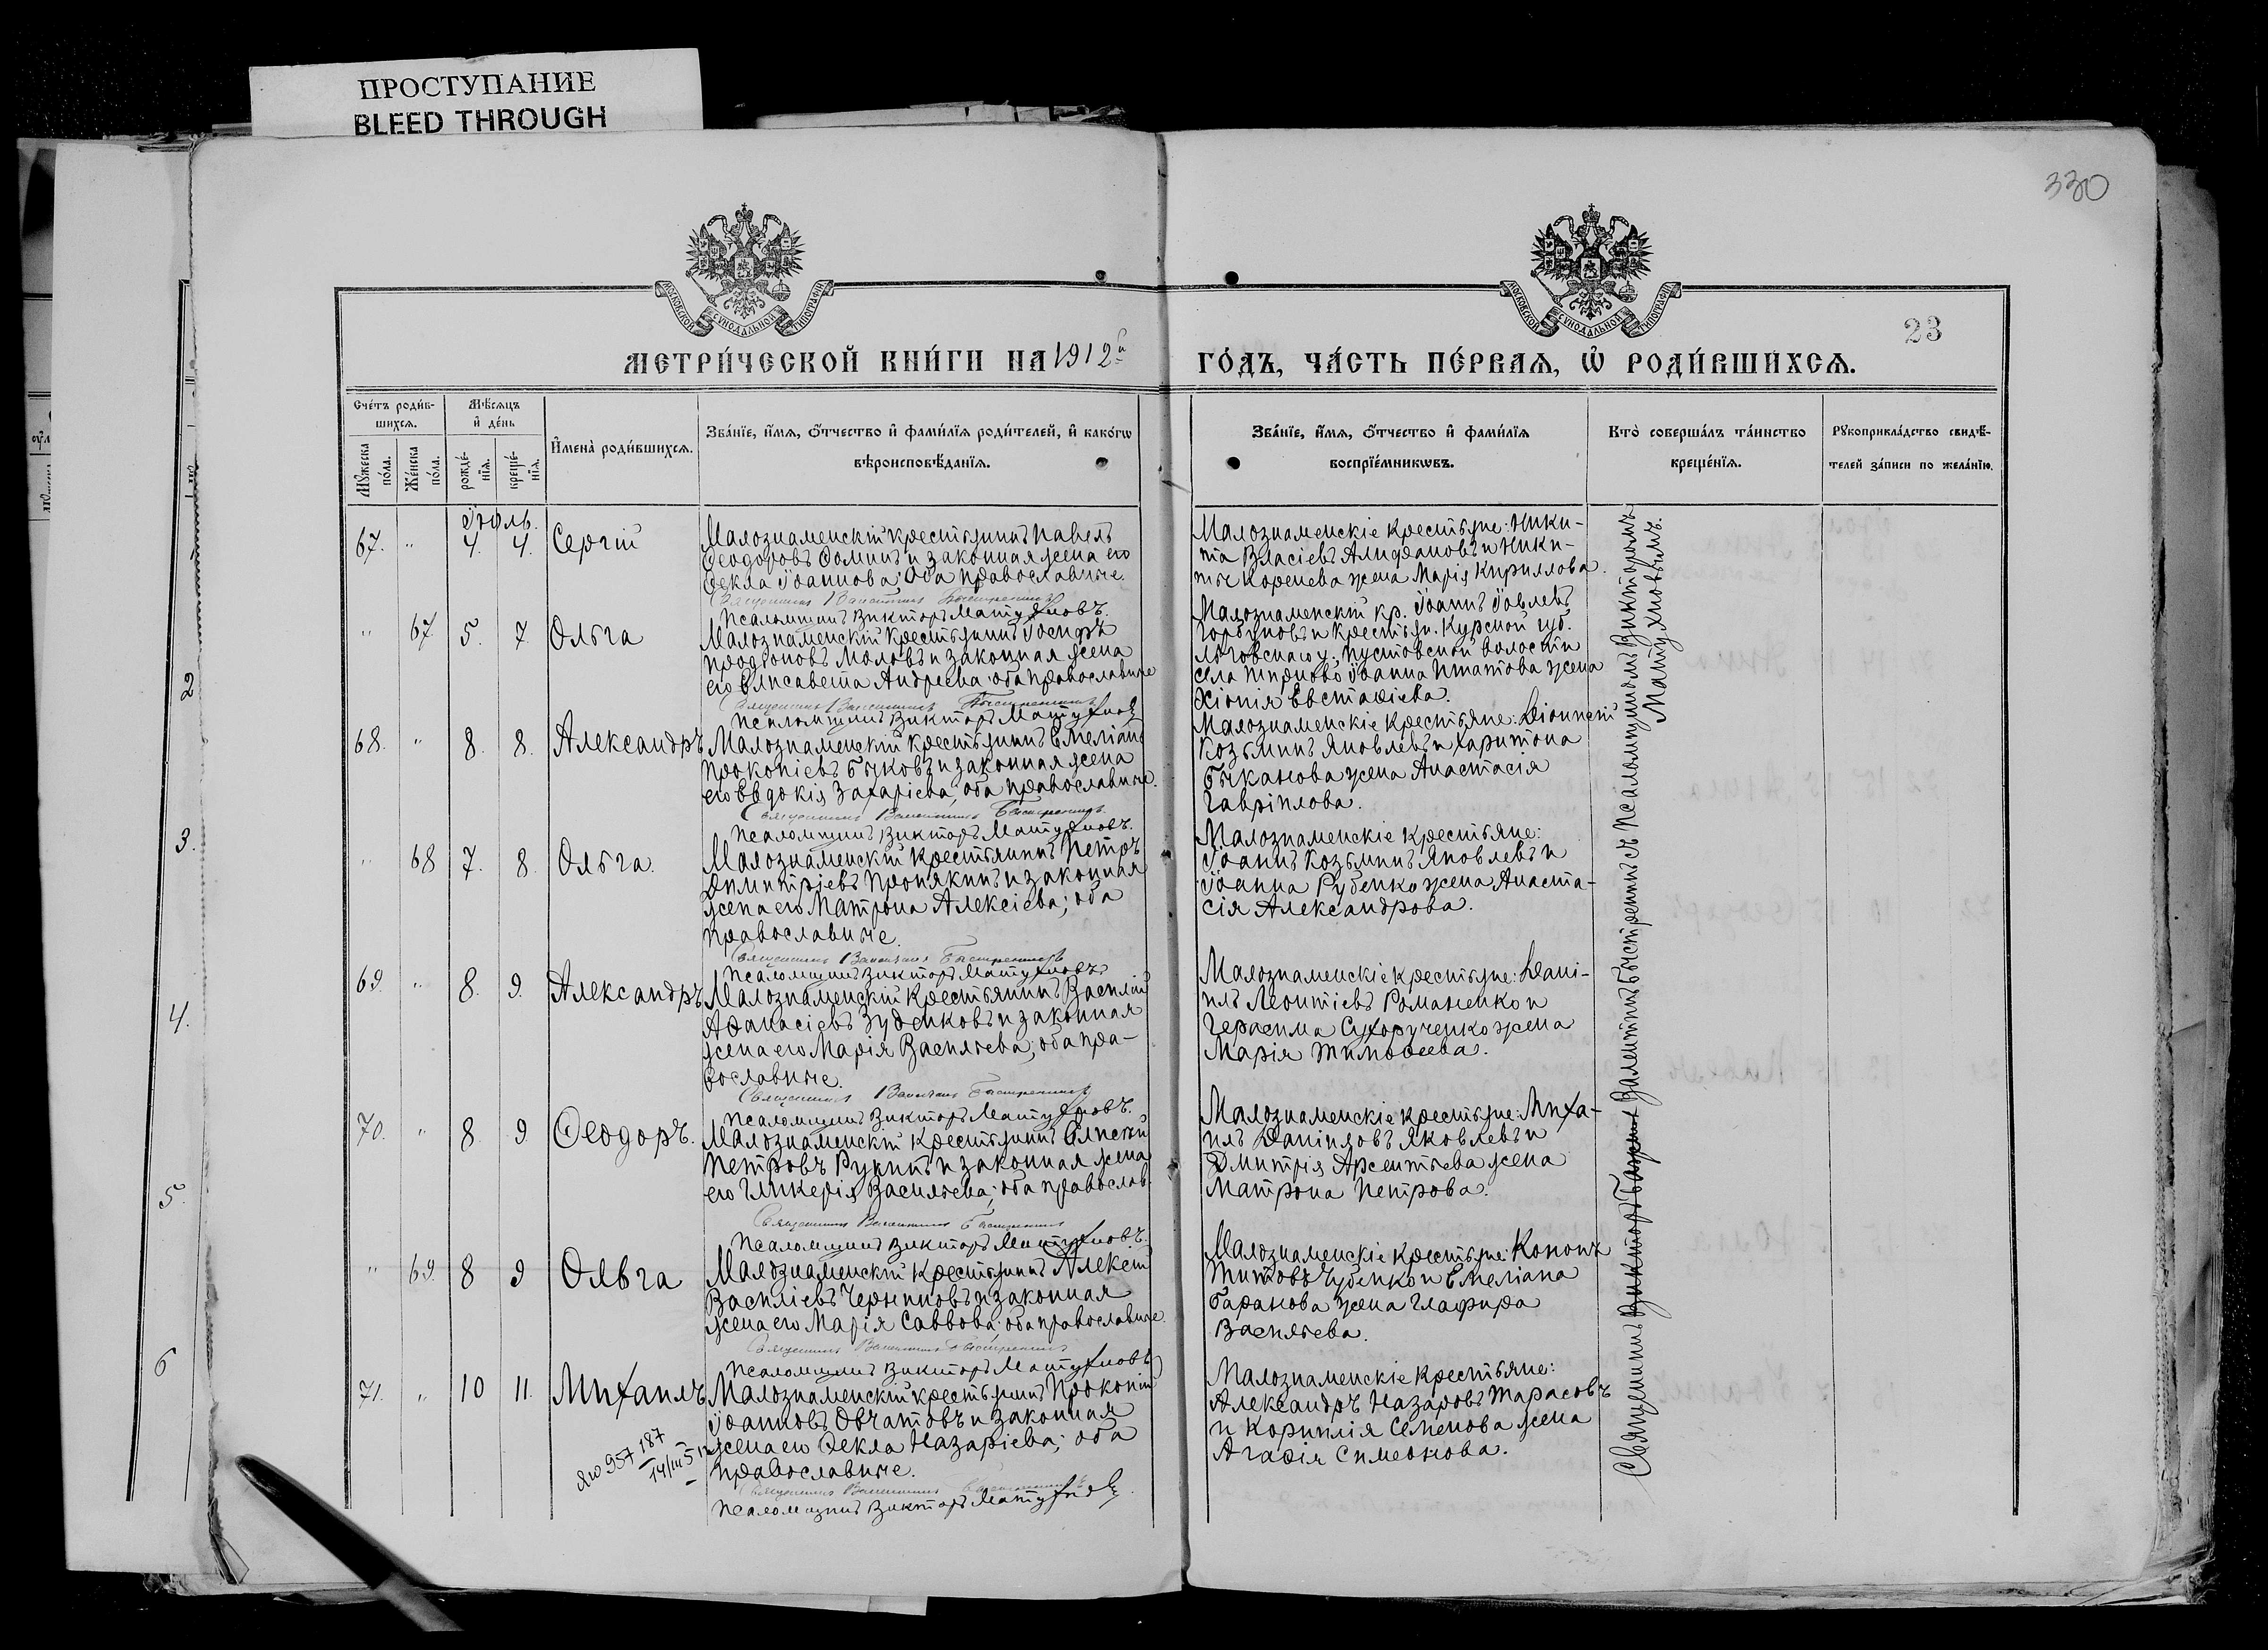 ПРОСТУПАНИЕ
BLEED THROUGH
330
МОСКОВСКОЙ СѴНОДАЛЬНОЙ ТИПОГРАФІИ
МОСКОВСКОЙ СѴНОДАЛЬНОЙ ТИПОГРАФІИ
23
МЕТРИ́ЧЕСКОЙ КНИ́ГИ НА 1912й ГО́ДЪ, ЧА́СТЬ ПЕ́РВАЯ, Ѡ҆ РОДИ́ВШИХСЯ.
Сче́тъ роди́в-
шихся.
Мꙋ́жеска по́ла.
Же́нска по́ла.
Мѣ́сяцъ
и҆ де́нь
рожде́-
нїя.
креще́-
нїя.
И҆мена̀ роди́вшихся.
Зва́нїе, и҆́мя, ѻ҆́тчество и҆ фами́лїя роди́телей, и҆ како́гѡ
вѣроисповѣ́данїя.
Зва́нїе, и҆́мя, ѻ҆́тчество и҆ фами́лїя
воспрїе́мникѡвъ.
Кто̀ соверша́лъ та́инство
креще́нїя.
Рꙋкоприкла́дство свидѣ́-
телей за́писи по жела́нїю.
Іюль.
67. " 4. 4. Сергій
Малознаменскій крестьянинъ Павелъ
Ѳеодоровъ Ѳоминъ и законная жена его
Ѳекла Іоаннова; Оба православные.
Священникъ Валентинъ Быстренинъ
Псаломщикъ Викторъ Матухновъ.
Малознаменскіе крестьяне: Ники-
та Власіевъ Алифановъ и Ники-
ты Коренева жена Марія Кириллова.
" 67 5. 7 Ольга
Малознаменскій крестьянинъ Іосифъ
Продіоновъ Моловъ и законная жена
его Елисавета Андреева; оба православные
Священникъ Валентинъ Быстренинъ
Псаломщикъ Викторъ Матухновъ
Малознаменскій кр. Іоаннъ Іовлевъ
Горбуновъ и крестьян. Курской губ.
Льговскаго у. Пустовской волости
села Іоанна жена
Хіонія Евстафіева.
68. " 8. 8. Александръ
Малознаменскій крестьянинъ Емеліанъ
Прокопіевъ Быковъ и законная жена
его Евдокія Захаріева; оба православные.
Священникъ Валентинъ Быстренинъ
Псаломщикъ Викторъ Матухновъ.
Малознаменскіе крестьяне: Діонисій
Козьминъ Яковлевъ и Харитона
Быканова жена Анастасія
Гавріилова.
" 68 7. 8. Ольга.
Малознаменскій крестьянинъ Петръ
Димитріевъ Пропякинъ и законная
жена его Матрона Алексіева; оба
православные.
Священникъ Валентинъ Быстренинъ
Псаломщикъ Викторъ Матухновъ
Малознаменскіе крестьяне:
Іоаннъ Козьминъ Яковлевъ и
Іоанна Рубенко жена Анаста-
сія Александрова.
69. " 8. 9. Александръ
Малознаменскій крестьянинъ Василій
Аѳанасіевъ Зуденковъ и законная
жена его Марія Васильева; оба пра-
вославные.
Священникъ Валентинъ Быстренинъ
Псаломщикъ Викторъ Матухновъ.
Малознаменскіе крестьяне: Дані-
илъ Леонтіевъ Романенко и
Герасима Сухорученко жена
Марія Тимоѳеева.
70. " 8 9 Ѳеодоръ.
Малознаменскій крестьянинъ Елисей
Петровъ Рукинъ и законная жена
его Гликерія Васильева; оба православ.
Священникъ Валентинъ Быстренинъ
Псаломщикъ Викторъ Матухновъ.
Малознаменскіе крестьяне: Миха-
илъ Даніиловъ Яковлевъ и
Дмитрія Арсентьева жена
Матрона Петрова.
" 69. 8 9 Ольга
Малознаменскій крестьянинъ Алексій
Василіевъ Черниковъ и законная
жена его Марія Саввова; оба православные.
Священникъ Валентинъ Быстренинъ
Псаломщикъ Викторъ Матухновъ
Малознаменскіе крестьяне: Кононъ
Титовъ Чубенко и Емеліана
Баранова жена Глафира
Васильева.
71. " 10 11. Михаилъ
Малознаменскій крестьянинъ Прокопій
Іоанновъ Овчатовъ и законная
жена его Ѳекла Назаріева; оба
православные.
Священникъ Валентинъ
Псаломщикъ Викторъ Матухновъ.
Малознаменскіе крестьяне:
Александръ Назаровъ Тарасовъ
и Корнилія Семенова жена
Агаѳія Симеонова.
957 187
14/III
Священникъ Валентинъ Быстренинъ съ псаломщикомъ Викторомъ
Матухновымъ.
2
3.
4.
5.
6